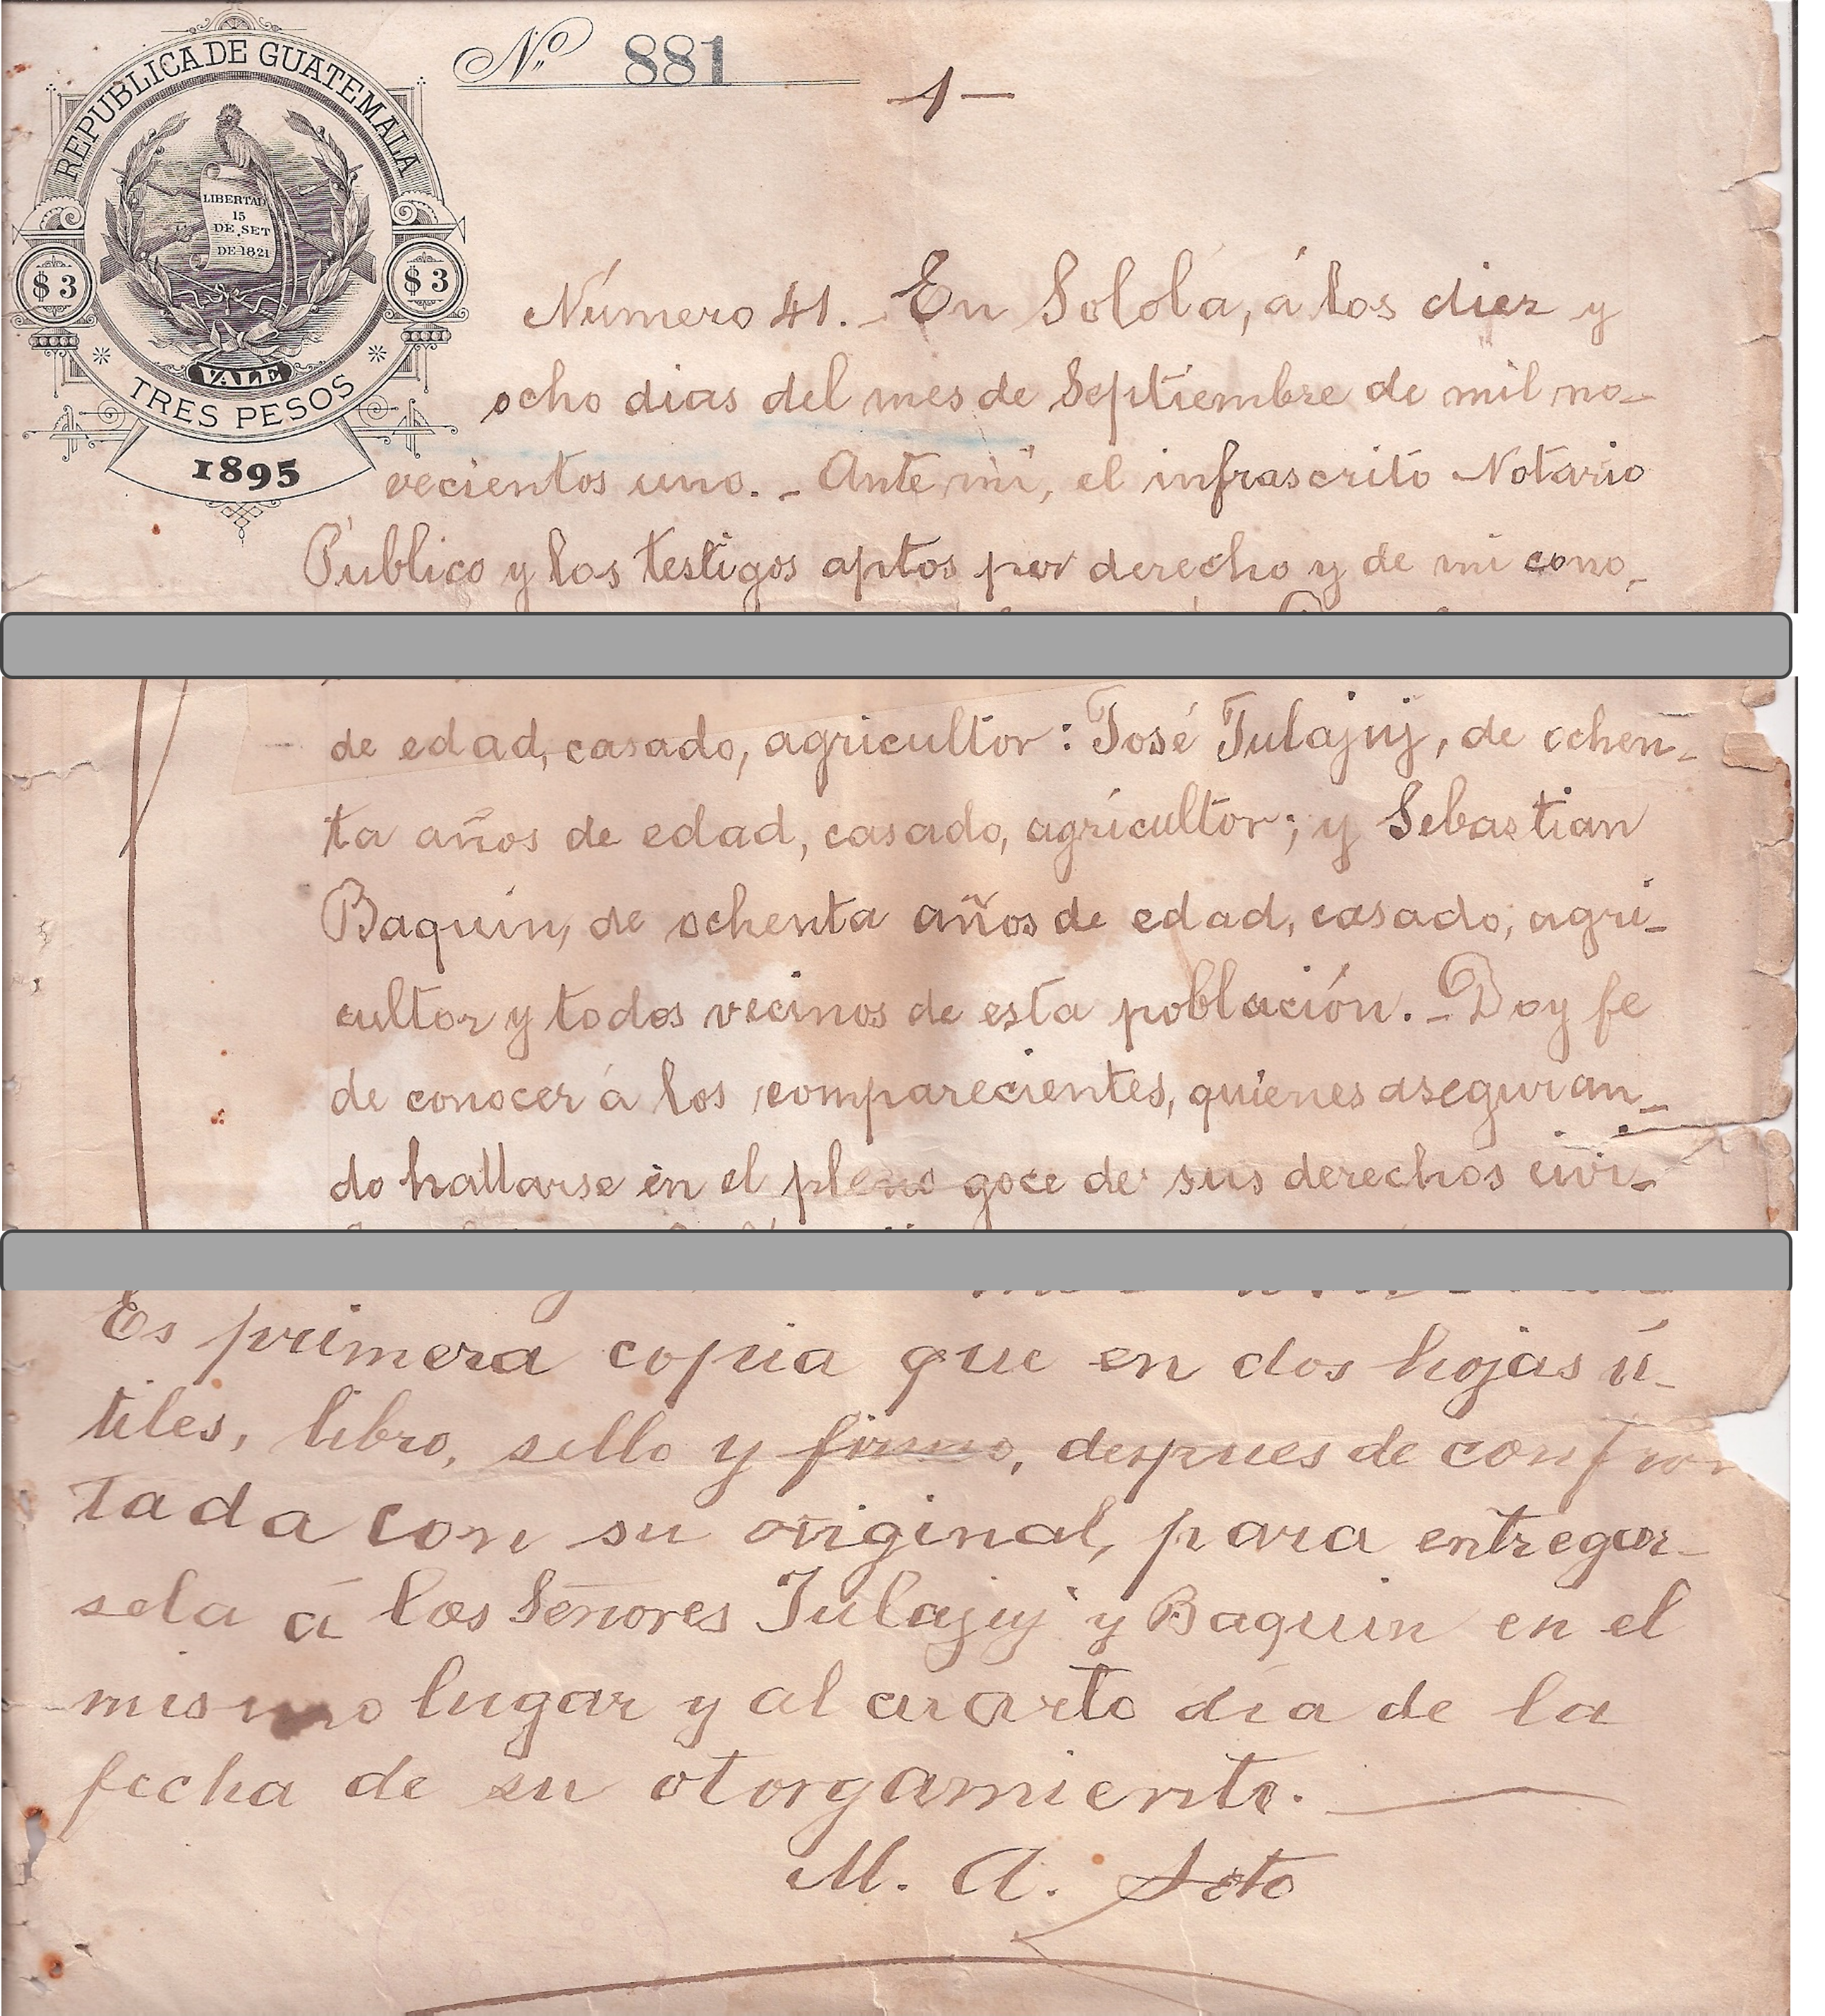 REPUBLICA DE GUATEMALA
Nº 881
1
LIBERTAD
15
DE SET
DE 1821
$3
$3
VALE
TRES PESOS
1895
Número 41. - En Sololá, á los diez y
ocho dias del mes de Septiembre de mil no-
vecientos uno. - Ante mi, el infrascrito Notario
Público y los testigos aptos por derecho y de mi cono-
de edad, casado, agricultor: José Julajuj, de ochen-
ta años de edad, casado, agricultor; y Sebastian
Baquin, de ochenta años de edad, casado, agri-
cultor y todos vecinos de esta población. - Doy fe
de conocer á los comparecientes, quienes aseguran-
do hallarse en el pleno goce de sus derechos civi-
Es primera copia que en dos hojas ú-
tiles, libro, sello y firmo, despues de confron
tada con su original, para entregar-
sela á los Señores Julajuj y Baquin en el
mismo lugar y al cuarto dia de la
fecha de su otorgamiento.
M. A. Soto